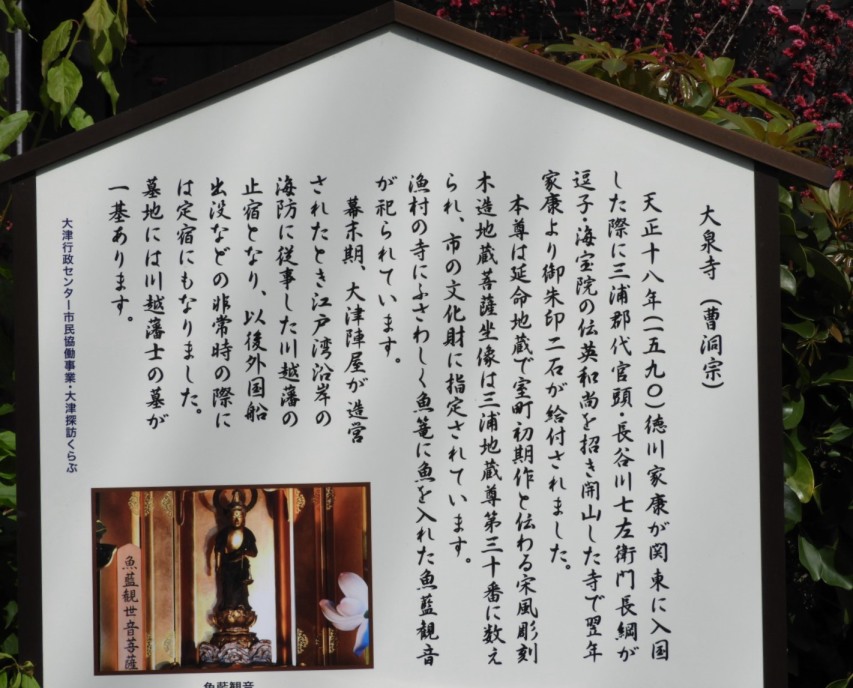 大泉寺（曹洞宗）
天正十八年(一五九〇)徳川家康が関東に入国
した際に三浦郡代官頭・長谷川七左衛門長綱が
逗子・海宝院の伝英和尚を招き開山した寺で翌年
家康より御朱印二石が給付されました。
本尊は延命地蔵で室町初期作と伝わる宋風彫刻
木造地蔵菩薩坐像は三浦地蔵尊第三十番に数え
られ、市の文化財に指定されています。
漁村の寺にふさわしく魚篭に魚を入れた魚藍観音
が祀られています。
幕末期、大津陣屋が造営
されたとき江戸湾沿岸の
海防に従事した川越藩の
止宿となり、以後外国船
出没などの非常時の際に
は定宿にもなりました。
墓地には川越藩士の墓が
一基あります。
大津行政センター市民協働事業・大津探訪くらぶ
魚藍観世音菩薩
魚藍観音